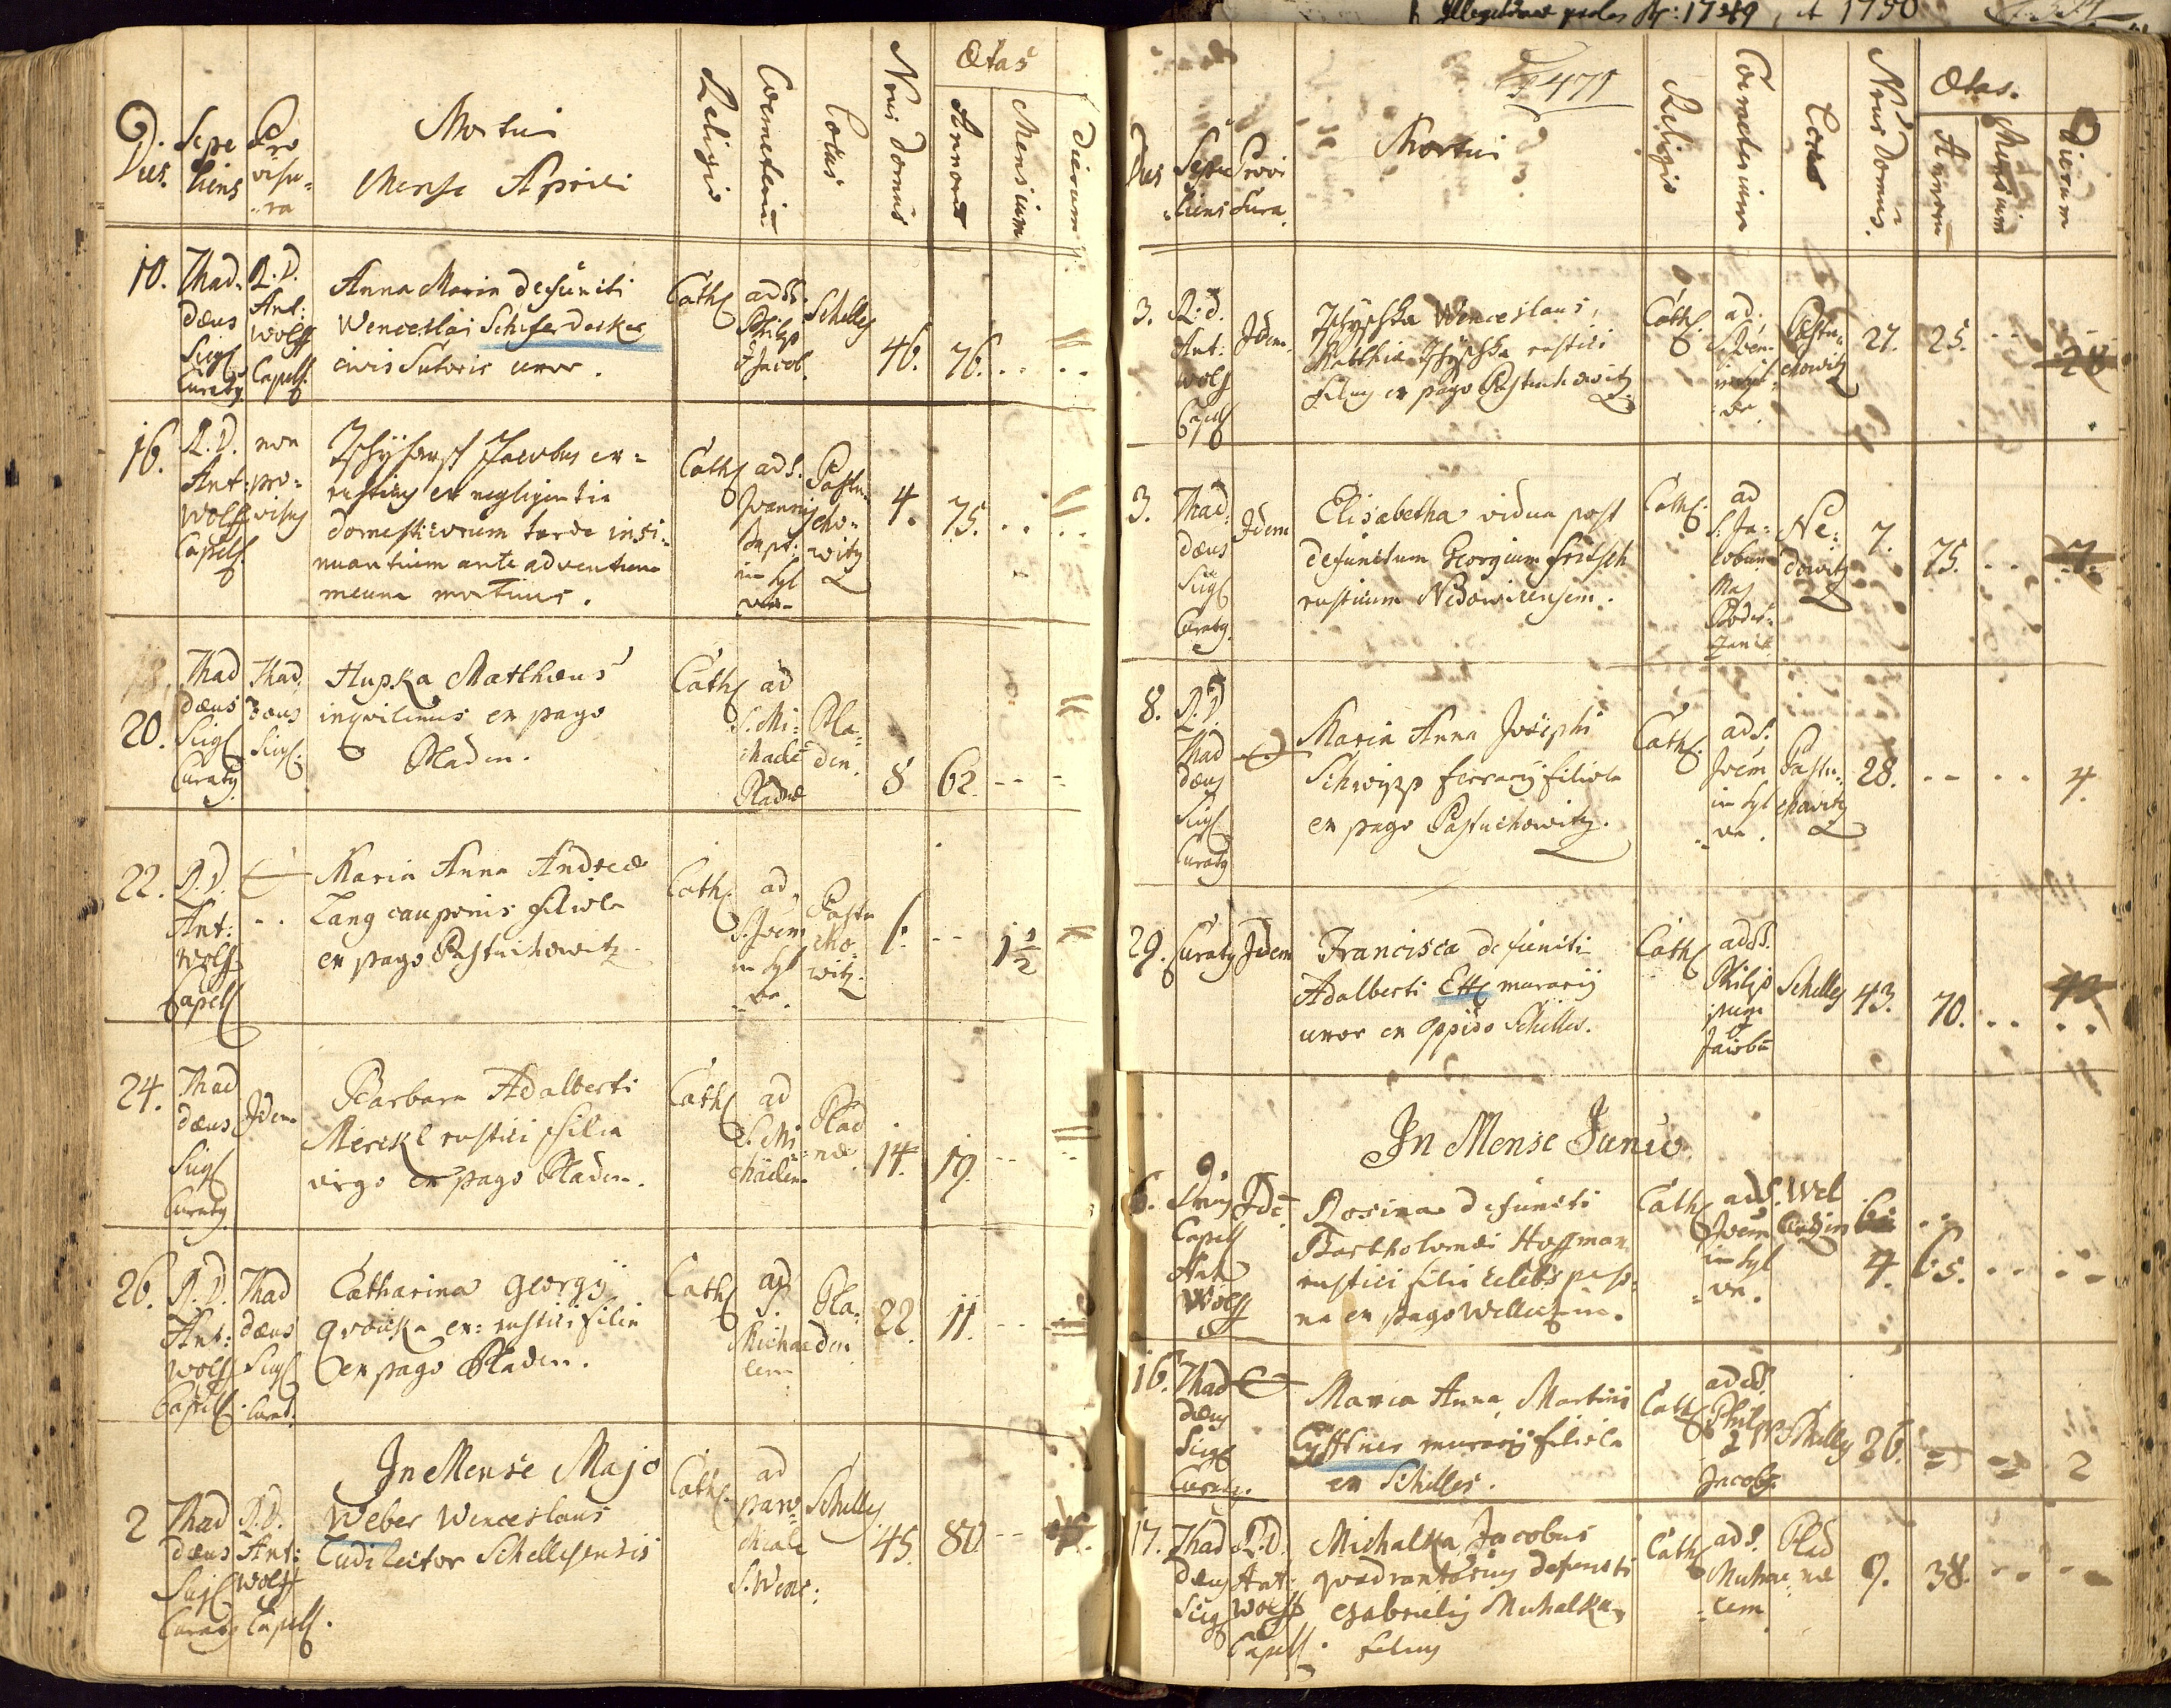 Dies.
Sepe
liens
Pro
visu=
ra
Mortui
Mense Aprili
Religio
Coemeterium
Locus
Nrus Domus
Ætas
Annorum
Mensium
Dierum
10.
Thad=
dæus
Sigl
Curatg
R: D.
Ant:
Wolff
Capell.
Anna Maria defuncti
Wenceslai Schiferdecker
civis Sutoris uxor.
Cath
ad SS.
Philip
& Jacob.
Schelles
46.
76.
16.
R. D.
Ant:
Wolff
Capell.
non
pro=
visus
Jacobus ex=
rusticus ex negligentia
domesticorum tarde insi=
nuantium ante adventum
meum mortuus.
Cath
ad S.
Joannem
Bapt:
in Syl
va
Pastu=
cho=
witz
4.
75.
20.
Thad
dæus
Sigl
Curatg
Thad
dæus
Sigl.
Hupka Matthæus
inqvilinus ex pago
Pladen.
Cath
ad
S. Mi=
chaele
Pladnæ
Pla=
den.
8
62
22.
R. D.
Ant:
Wolff
Capell
Maria Anna Andreæ
Lang cauponis filiola
ex pago Pastuchowitz.
Cath
ad
S. Joem
in Syl
va.
Pastu
cho=
witz.
1.
1 1/2
24.
Thad
dæus
Sigl
Curatg
Idem
Barbara Adalberti
Merckl rustici filia
virgo ex pago Pladen.
Cath
ad
S. Mi
chaelem
Plad
næ
14.
19.
26.
R. D.
Ant:
Wolff
Capell.
Thad
dæus
Sigl
Curat.
Catharina Georgij
Qvoicka ex= rustici filia
ex pago Pladen.
Cath
ad
S.
Michae
lem
Pla=
den
22.
11.
In Mense Majo
2
Thad
dæus
Sigl
Curatg
R. D.
Ant:
Wolff
Capell.
Weber Wenceslaus
Ludi Rector Schellesensis
Cath.
ad
paro=
chiale
S. Wenc:
Schelles
45.
80
1749, et 1750
471
Dies
Sepe
liens
Provi
sura.
Mortui
Religio
Coemeterium
Locus
Nrus Domus.
Ætas.
Annorum
Mensium
Dierum
3.
R: D.
Ant:
Wolf
Capell
Idem.
Wenceslaus,
Matthiæ rustici
filius ex pago Pastuchowitz.
Cath.
ad
S. Joem
in Syl=
va.
Pastu=
chowitz
27.
25.
28
3.
Thad=
dæus
Sigl
Curatg.
Idem
Elisabetha vidua post
defunctum Georgium Fritsch
rusticum Nedowicensem.
Cath.
ad
S. Ja=
cobum
Maj
Ne=
dowitz
7.
75.
7.
8.
R. D.
Thad
dæus
Sigl
Curatg
Maria Anna Josephi
Schwipp ferrarij filiola
ex pago Pastuchowitz.
Cath.
ad S.
Joem
in Syl
va.
Pastu=
chowitz
28.
4.
29.
Curatg
Idem
Francisca defuncti
Adalberti Ettl murarij
uxor ex oppido Schelles.
Cath
ad SS.
Philip
pum
&
Jacobū
Schelles
43.
70.
In Mense Junio
6.
Capell
Ant
Wolff
Idē.
Rosina defuncti
Bartholomæi Hoffman
rustici filia cælebs perso=
na ex pago Welletzin.
Cath
ad S.
Joem
in Syl
va.
Wel
letzin
4.
65.
16.
Thad
dæus
Sigl
Curatg.
Maria Anna Martini
Eyssner murarij filiola
ex Schelles.
Cath
ad SS.
Philip
&
Jacob.
Schelles
26.
2
17.
Thad
dæus
Sigl
R. D.
Ant:
Wolff
Capell.
Michalka Jacobus
qvadrantarius defuncti
Gabrielis Michalka
filius
Cath
ad S.
Michae
lem
Plad
næ
9.
38.